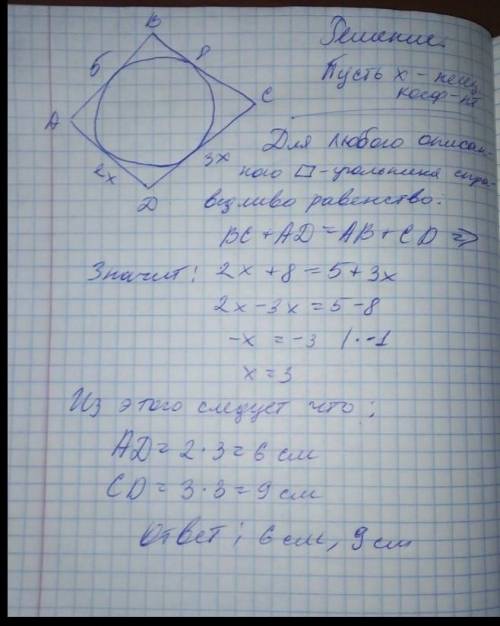 B
5
8
A
C
2x
3x
D
Решение.
Пусть x - неиз.
коэф-нт
Для любого описан-
ного □-угольника спра-
ведливо равенство:
BC + AD = AB + CD ⇒
Значит: 2x + 8 = 5 + 3x
2x - 3x = 5 - 8
-x = -3 | · -1
x = 3
Из этого следует что:
AD = 2 · 3 = 6 см
CD = 3 · 3 = 9 см
Ответ: 6 см, 9 см